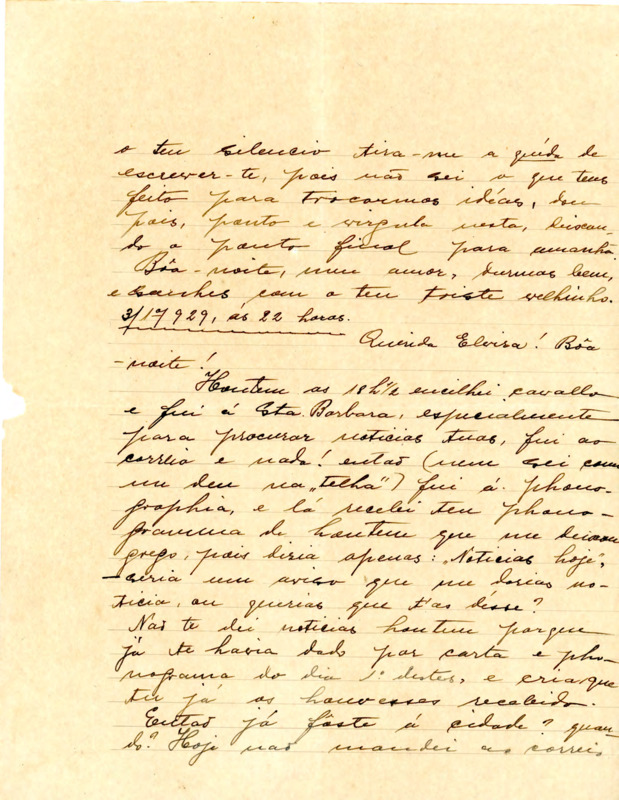 o teu silencio tira-me a guida de
escrever-te, pois não sei o que tens
feito para trocarmos idéas, dou
pois, ponto e virgula nesta, deixan-
do o ponto final para amanhã.
Bôa-noite, meu amor, durmas bem,
e sonhes com o teu triste velhinho.
929, ás 22 horas.
Querida Elvira! Bôa
-noite!
Hontem as 18h½ encilhei cavallo
e fui á Sta. Barbara, especialmente
para procurar noticias tuas, fui ao
correio e nada! então (nem sei como
me deu na "telha") fui á phono-
graphia, e lá recebi teu phono-
gramma de hontem que me deixou
grego, pois dizia apenas: "Noticias hoje",
-seria um aviso que me darias no-
ticia, ou querias que t'as désse?
Não te dei noticias hontem porque
já te havia dado por carta e pho-
nograma do dia 1º destes, e cria que
tu já as houvesses recebido.
Então já fôste á cidade? quan-
do? Hoje não mandei ao correio